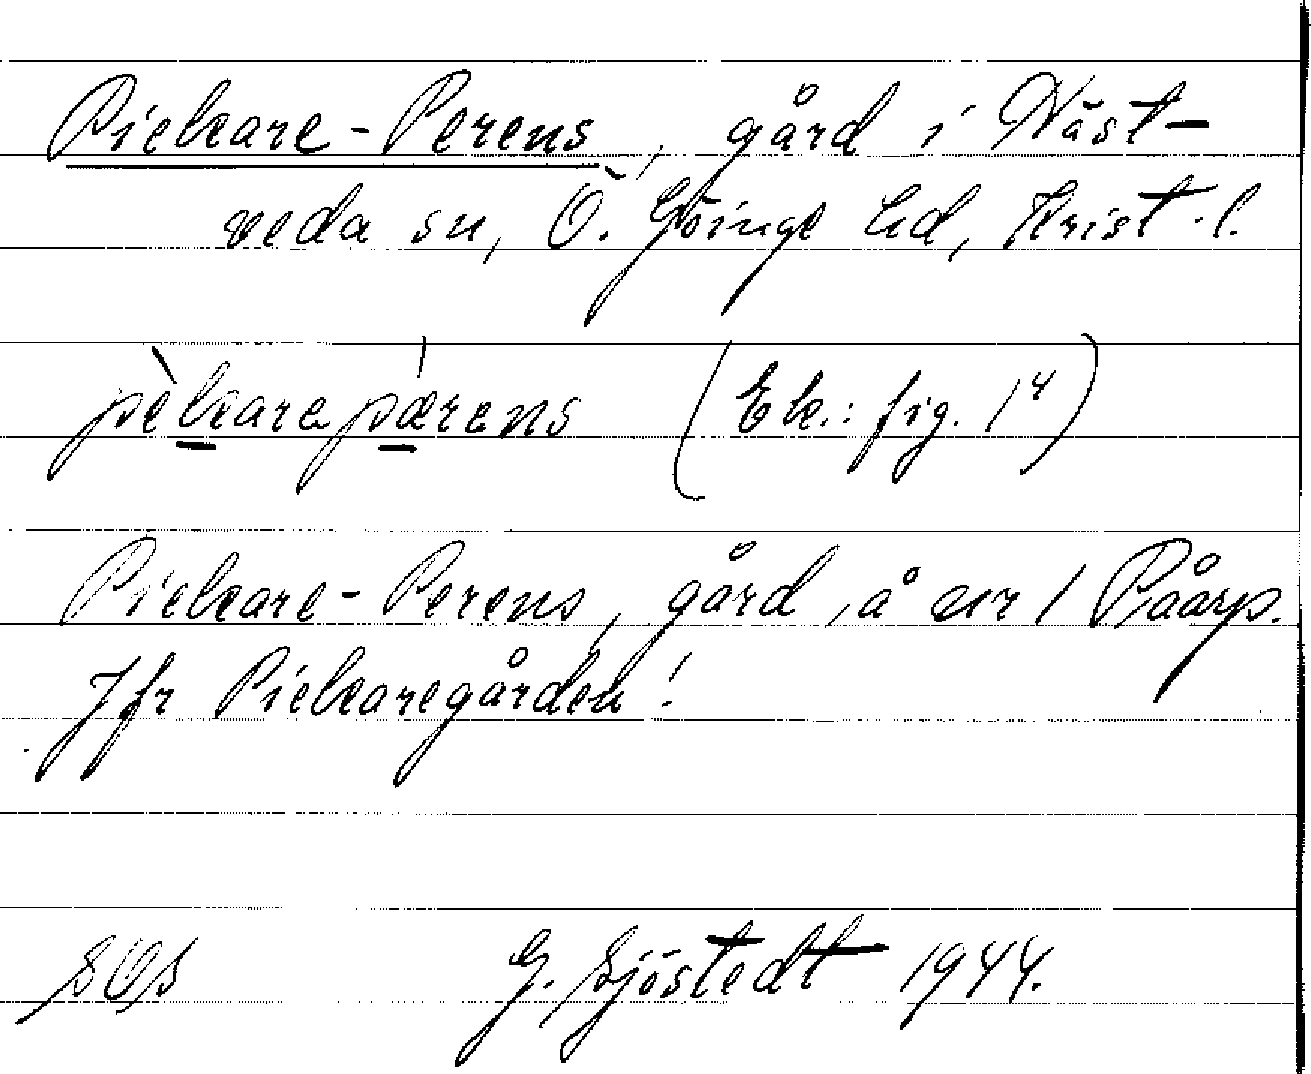 Piekare-Perens, gård i Väst-
veda sn, Ö. Göinge hd, Krist. l.
pèkarepǽrens (Ek.: fig. 1⁴)
Piekare-Perens, gård, å nr 1 Påarp.
Jfr Piekaregården!
G. Sjöstedt 1944.